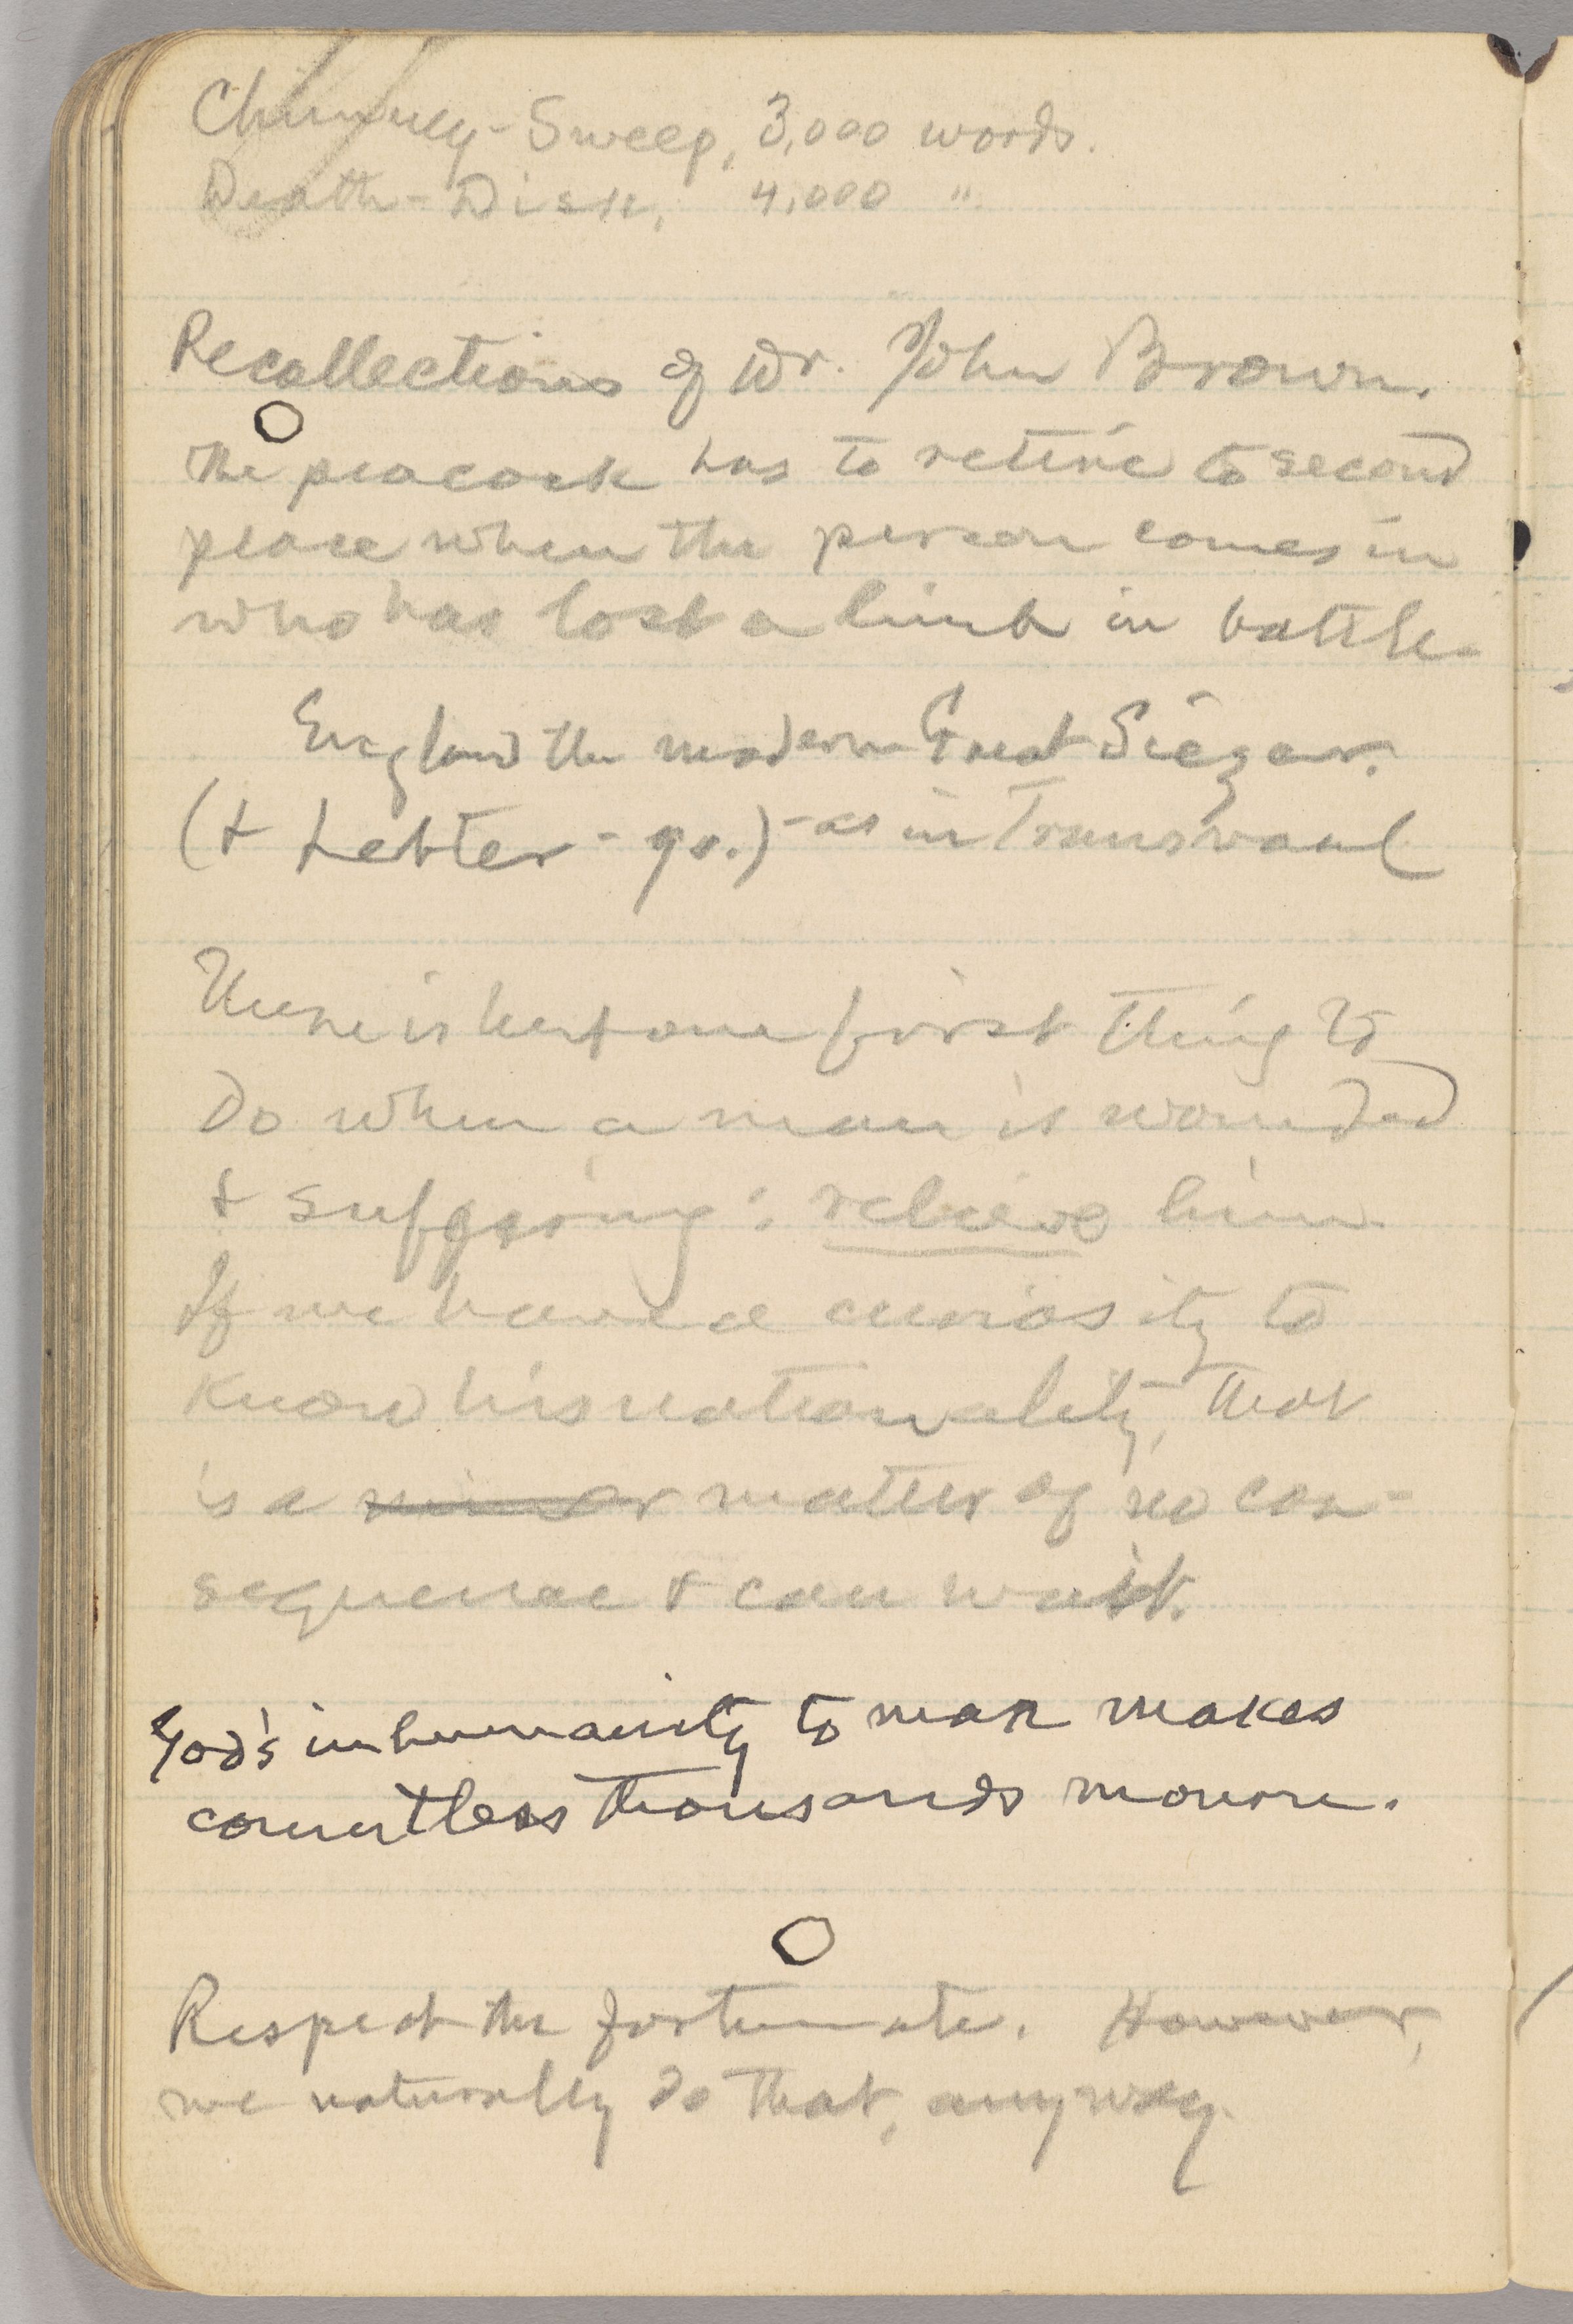 Chimney-Sweep, 3,000 words.
Death-Disk, 4,000 "
Recollections of Dr. John Brown.
The peacock has to retire to second
place when the person comes in
who has lost a limb in battle.
England the modern Great Siezer.
(& Letter-go.) - as in Transvaal
There is but one first thing to
do when a man is wounded
& suffering: relieve him.
If we have a curiosity to
know his nationality, that
is a minor matter of no con-
sequence & can wait.
God's inhumanity to man makes
countless thousands mourn.
Respect the fortunate. However,
we naturally do that, anyway.